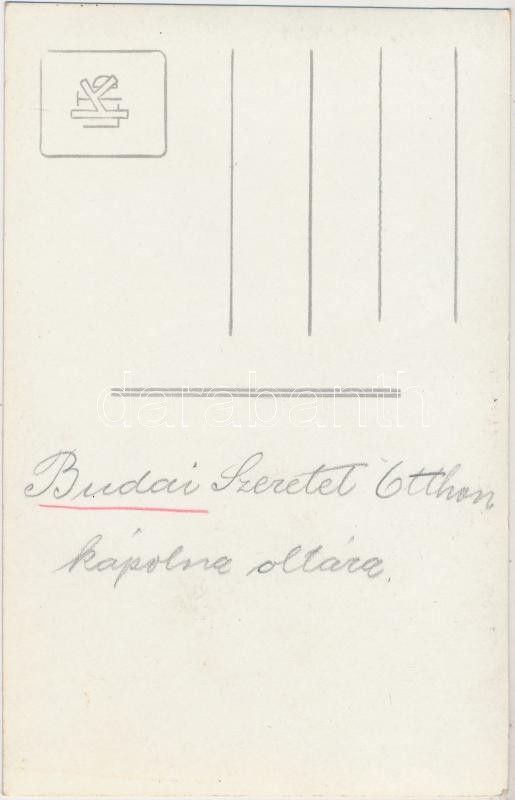 darabanth
Budai Szeretet Otthon
kápolna oltára.